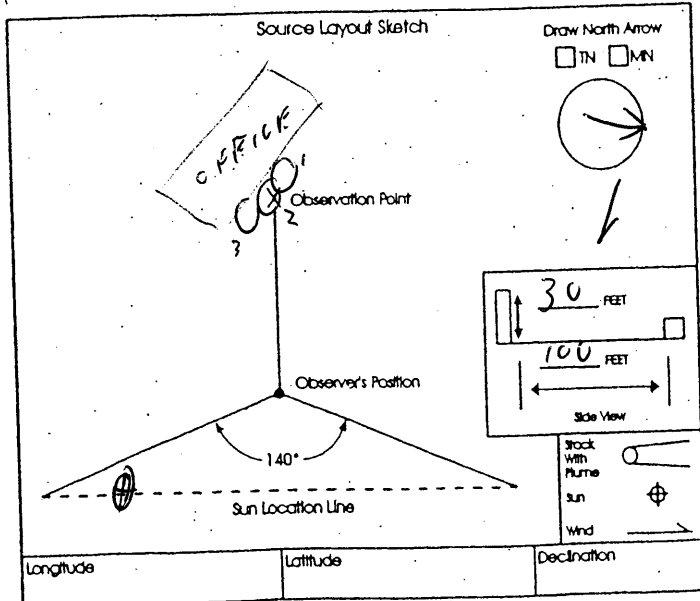 Source Layout Sketch
Draw North Arrow
TN MN
OFFICE
1
Observation Point
2
3
30 FEET
100 FEET
Side View
Observer's Position
140°
Stack
With
Plume
Sun
Sun Location Line
Wind
Longitude
Latitude
Declination